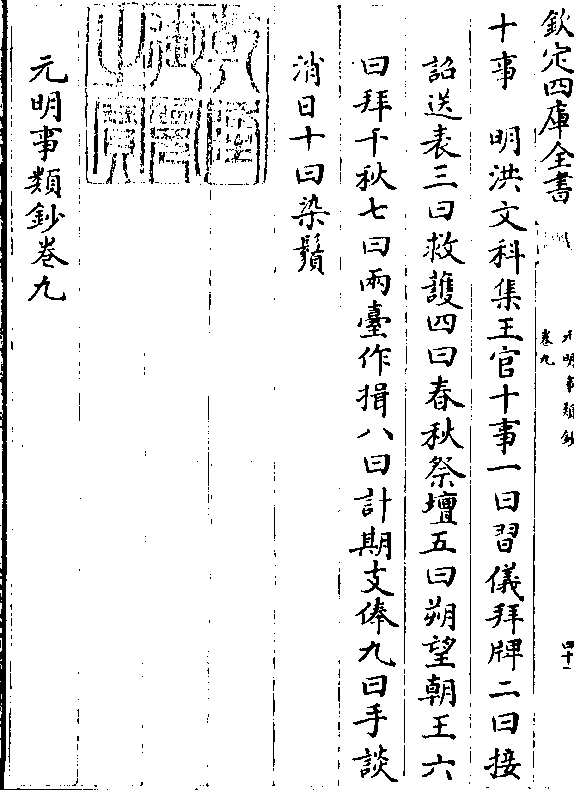 欽定四庫全書
元明事類鈔
卷九
十事　明洪文科集王官十事一曰習儀拜牌二曰接
詔送表三曰救護四曰春秋祭壇五曰朔望朝王六
曰拜千秋七曰兩臺作揖八曰計期支俸九曰手談
消日十曰染鬚
乾隆御覽之寶
元明事類鈔卷九